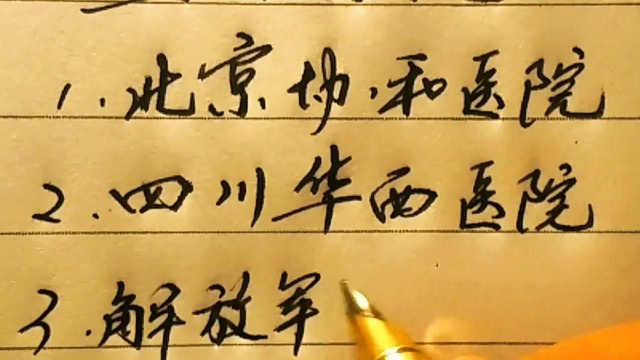 1.北京协和医院
2.四川华西医院
3.解放军